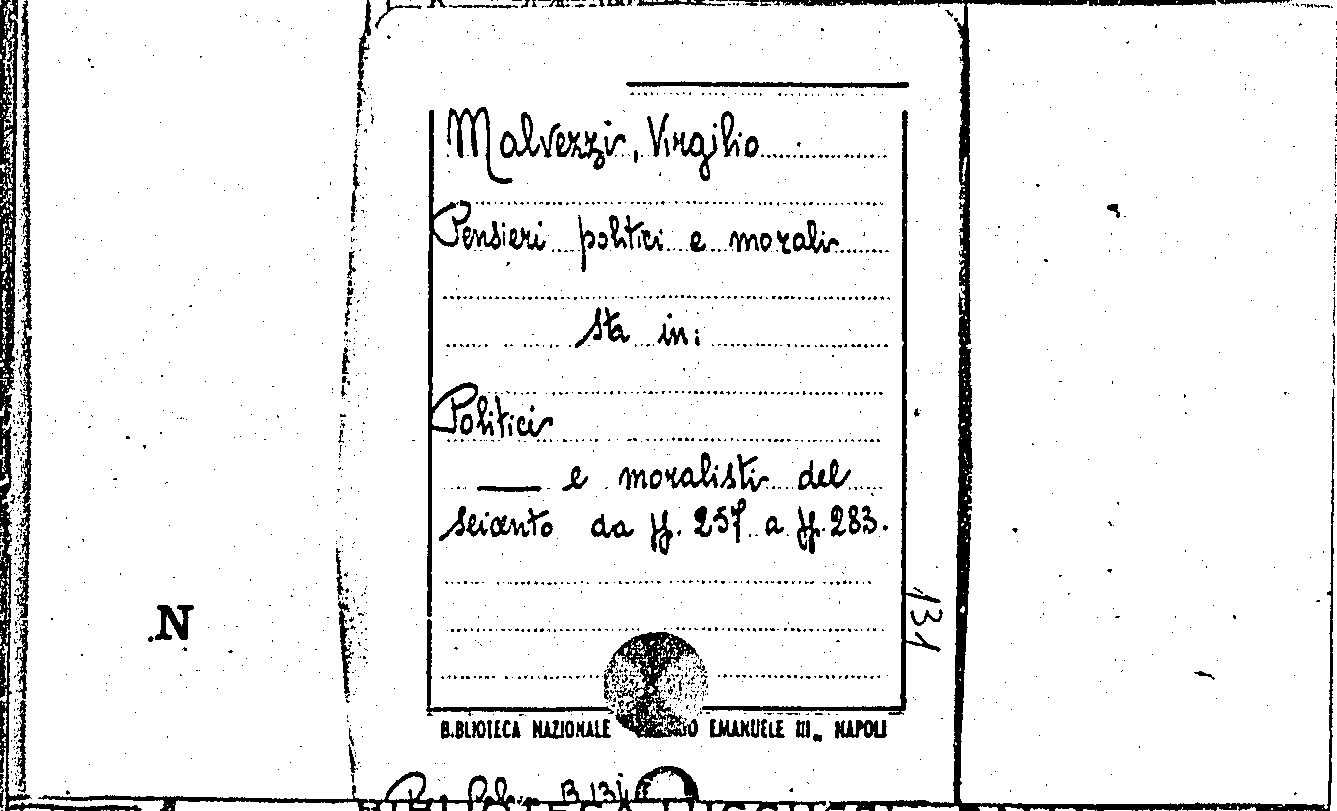 Malvezzi, Virgilio
Pensieri politici e morali
sta in:
Politici
— e moralisti del
seicento da ff. 257 a ff. 283.
131
N
B.BLIOTECA NAZIONALE EMANUELE III„ NAPOLI